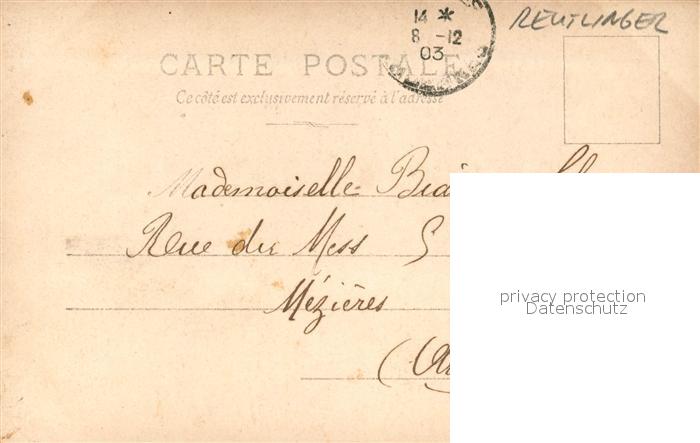 REUTLINGER
14 *
8 -12
03
CARTE POSTALE
Ce côté est exclusivement réservé à l'adresse
Mademoiselle
Rue du Mess 5
Mézières
privacy protection
Datenschutz